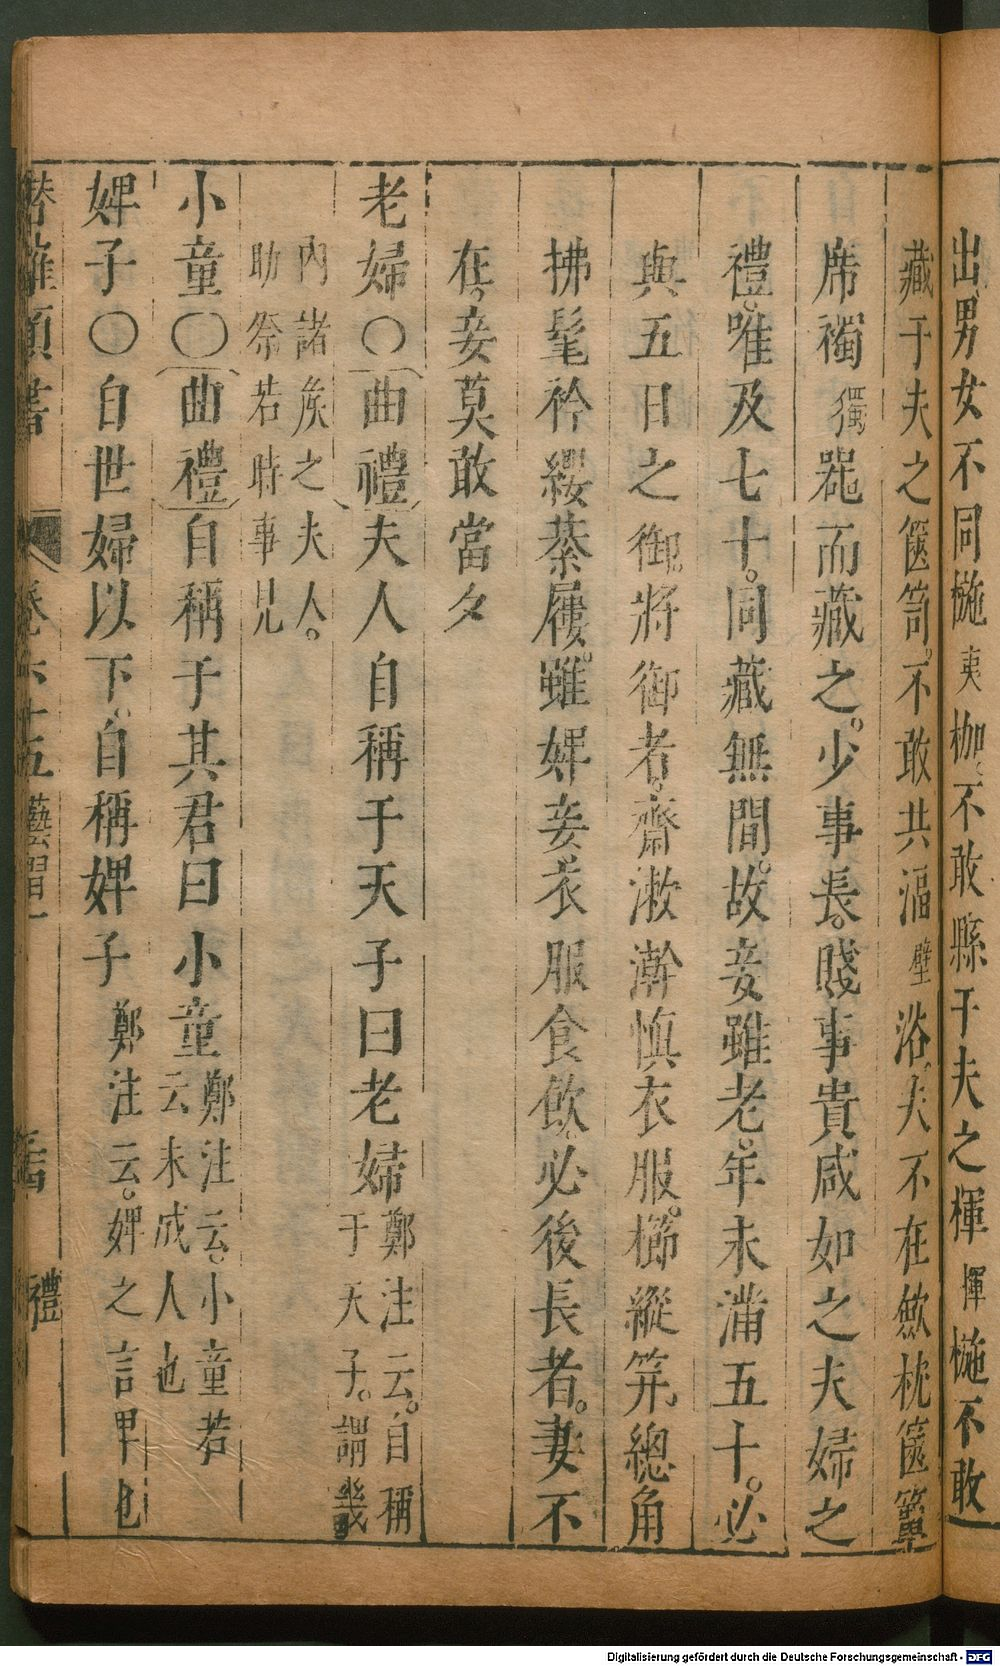 出男女不同椸夷枷。不敢縣于夫之楎揮椸不敢
藏于夫之篋笥。不敢共湢壁浴。夫不在歛枕篋簟
席襡獨器而藏之。少事長。賤事貴咸如之夫婦之
禮。唯及七十。同藏無間。故妾雖老。年未滿五十。必
與五日之御。將御者。齋漱澣慎衣服。櫛縰笄總角
拂髦衿纓綦屨。雖婢妾衣服食飲。必後長者。妻不
在妾莫敢當夕
老婦〇曲禮夫人自稱于天子曰老婦鄭注云。自稱
于天子。謂畿
內諸侯之夫人。
助祭若時事見
小童〇曲禮自稱于其君曰小童鄭注云。小童若
云未成人也
婢子〇自世婦以下。自稱婢子鄭注云。婢之言卑也
卷六十五 藝習一 禮
Digitalisierung gefördert durch die Deutsche Forschungsgemeinschaft - DFG